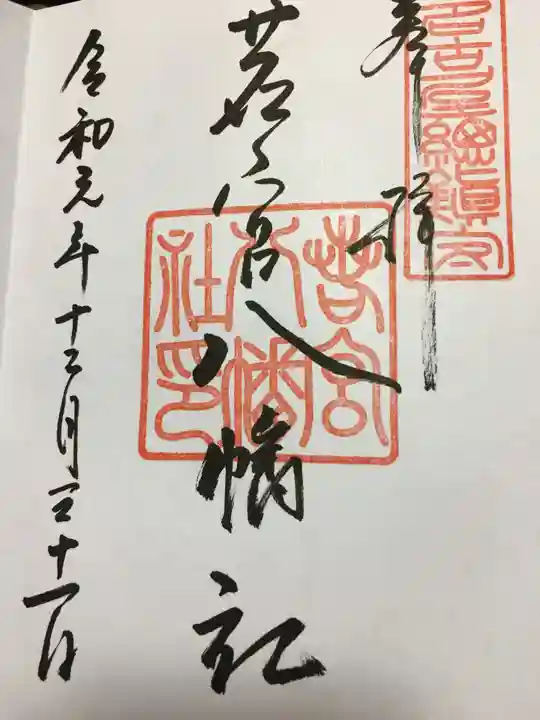 奉拝
名古屋總鎮守
若宮八幡社
若宮八幡社印
令和元年十二月三十一日